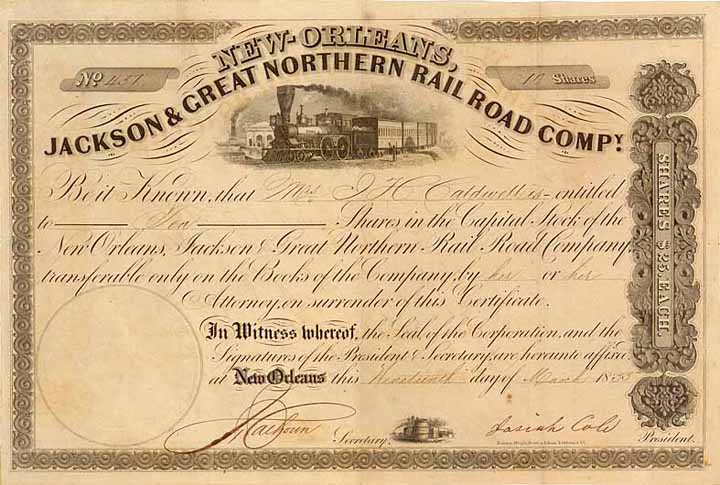 NEW-ORLEANS,
No 457
10 Shares
JACKSON & GREAT NORTHERN RAIL ROAD COMPY.
Be it Known, that Mrs J H Caldwell is entitled
to Ten Shares in the Capital Stock of the
New Orleans, Jackson & Great Northern Rail Road Company,
transferable only on the Books of the Company, by her or her
Attorney, on surrender of this Certificate.
In Witness whereof, the Seal of the Corporation, and the
Signatures of the President & Secretary, are hereunto affixed
at New Orleans this day of March 1855
Calhoun Secretary.
Josiah Cole President.
SHARES $25 EACH.